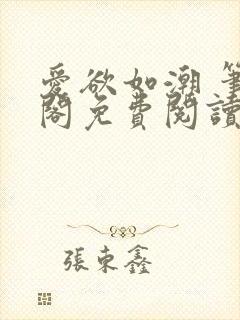 愛欲如潮 筆
閣免費閱讀
張東鑫